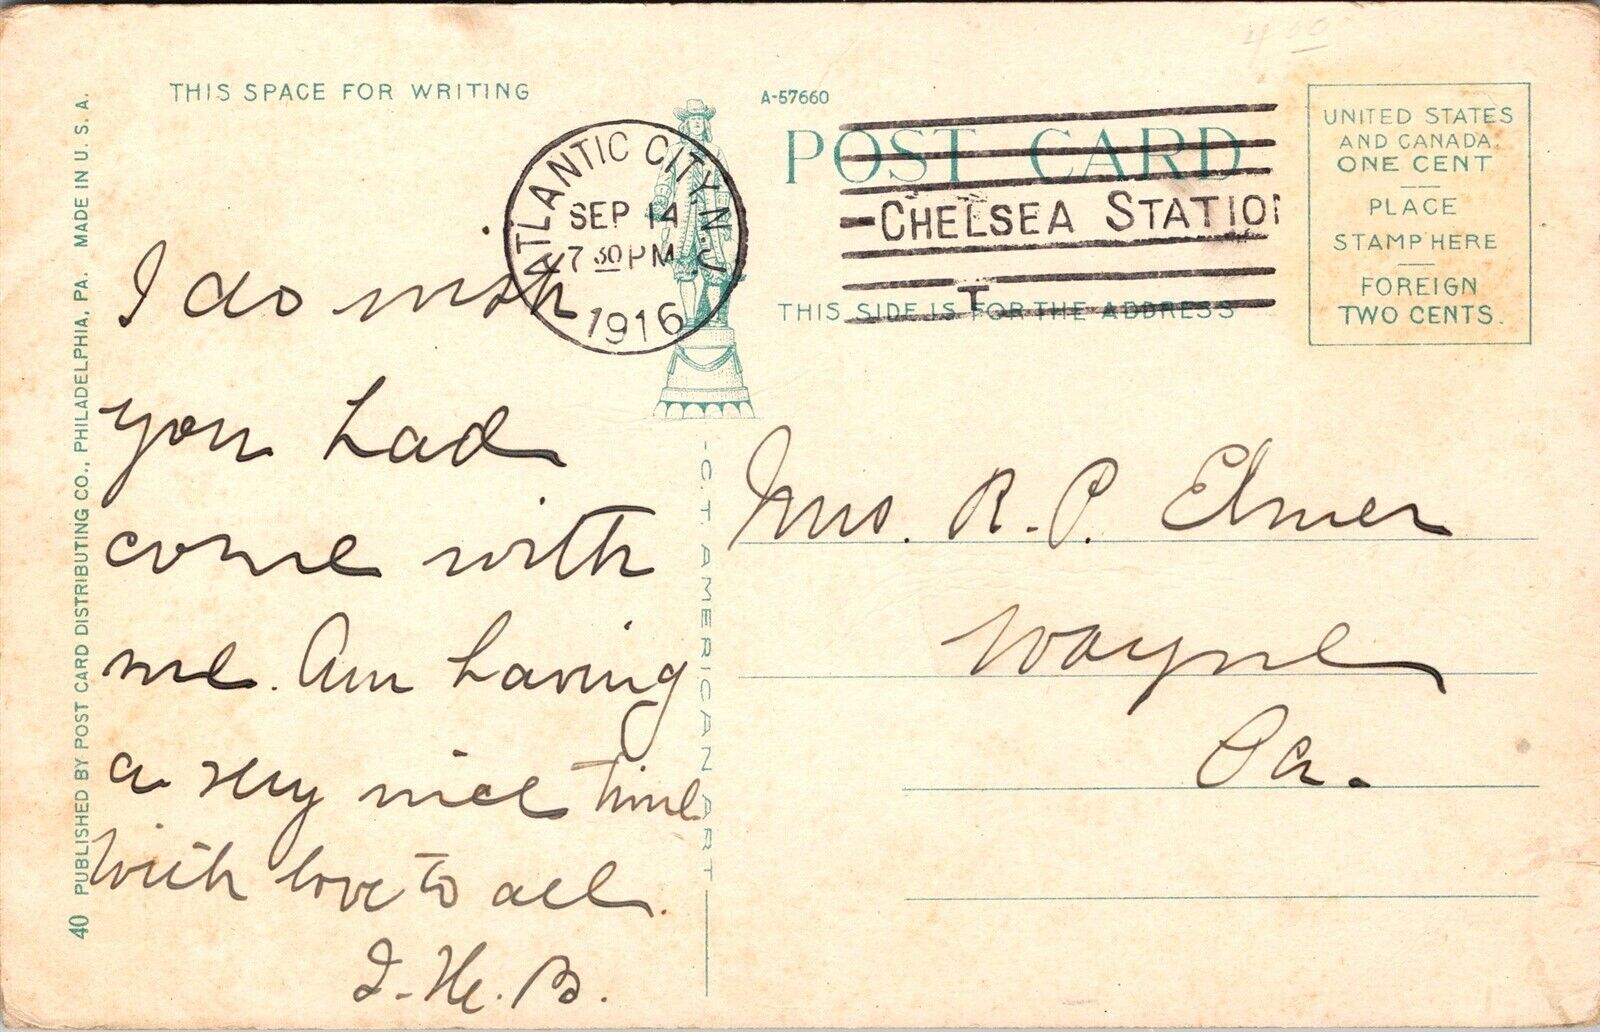 4 00
THIS SPACE FOR WRITING
A-57660
POST CARD
ATLANTIC CITY, N.J.
SEP 14
7 30 PM
1916
CHELSEA STATIO
T
THIS SIDE IS FOR THE ADDRESS
UNITED STATES
AND CANADA:
ONE CENT
PLACE
STAMP HERE
FOREIGN
TWO CENTS.
I do wish
you had
come with
me. Am having
a very nice time
With love to all.
I. H. B.
Mrs. R. P. Elmer
Wayne
Pa.
C.T. AMERICAN ART
40 PUBLISHED BY POST CARD DISTRIBUTING CO., PHILADELPHIA, PA. MADE IN U.S.A.